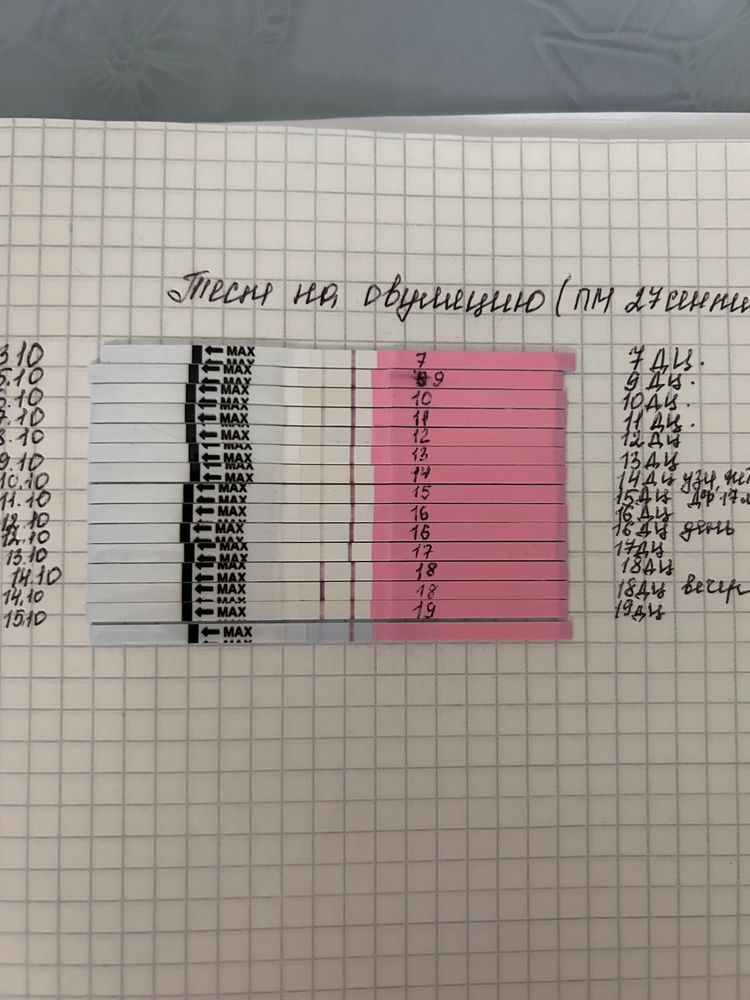 Тест на овуляцию (ПМ 27 сентя
3.10 ← MAX 7 7 ДЦ.
5.10 ← MAX 9 9 ДЦ.
6.10 ← MAX 10 10 ДЦ.
7.10 ← MAX 11 11 ДЦ.
8.10 ← MAX 12 12 ДЦ
9.10 ← MAX 13 13 ДЦ
10.10 ← MAX 14 14 ДЦ узи,
11.10 ← MAX 15 15 ДЦ ДФ 17м
12.10 ← MAX 16 16 ДЦ
12.10 ← MAX 16 16 ДЦ день
13.10 ← MAX 17 17 ДЦ
14.10 ← MAX 18 18 ДЦ
14.10 ← MAX 18 18 ДЦ вечер
15.10 ← MAX 19 19 ДЦ
← MAX